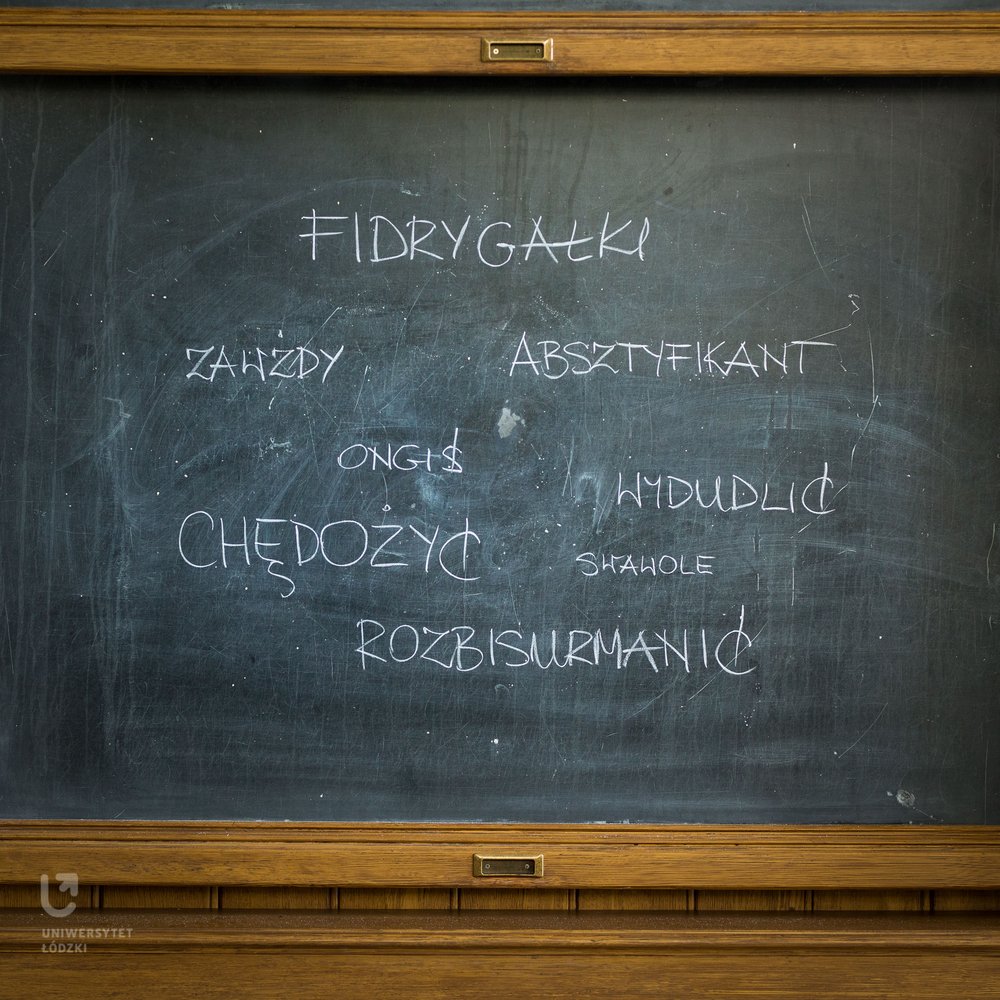 FIDRYGAŁKI
ZAWŻDY
ABSZTYFIKANT
ONGIŚ
WYDUDLIĆ
CHĘDOŻYĆ
SWAWOLE
ROZBISURMANIĆ
UNIWERSYTET
ŁÓDZKI